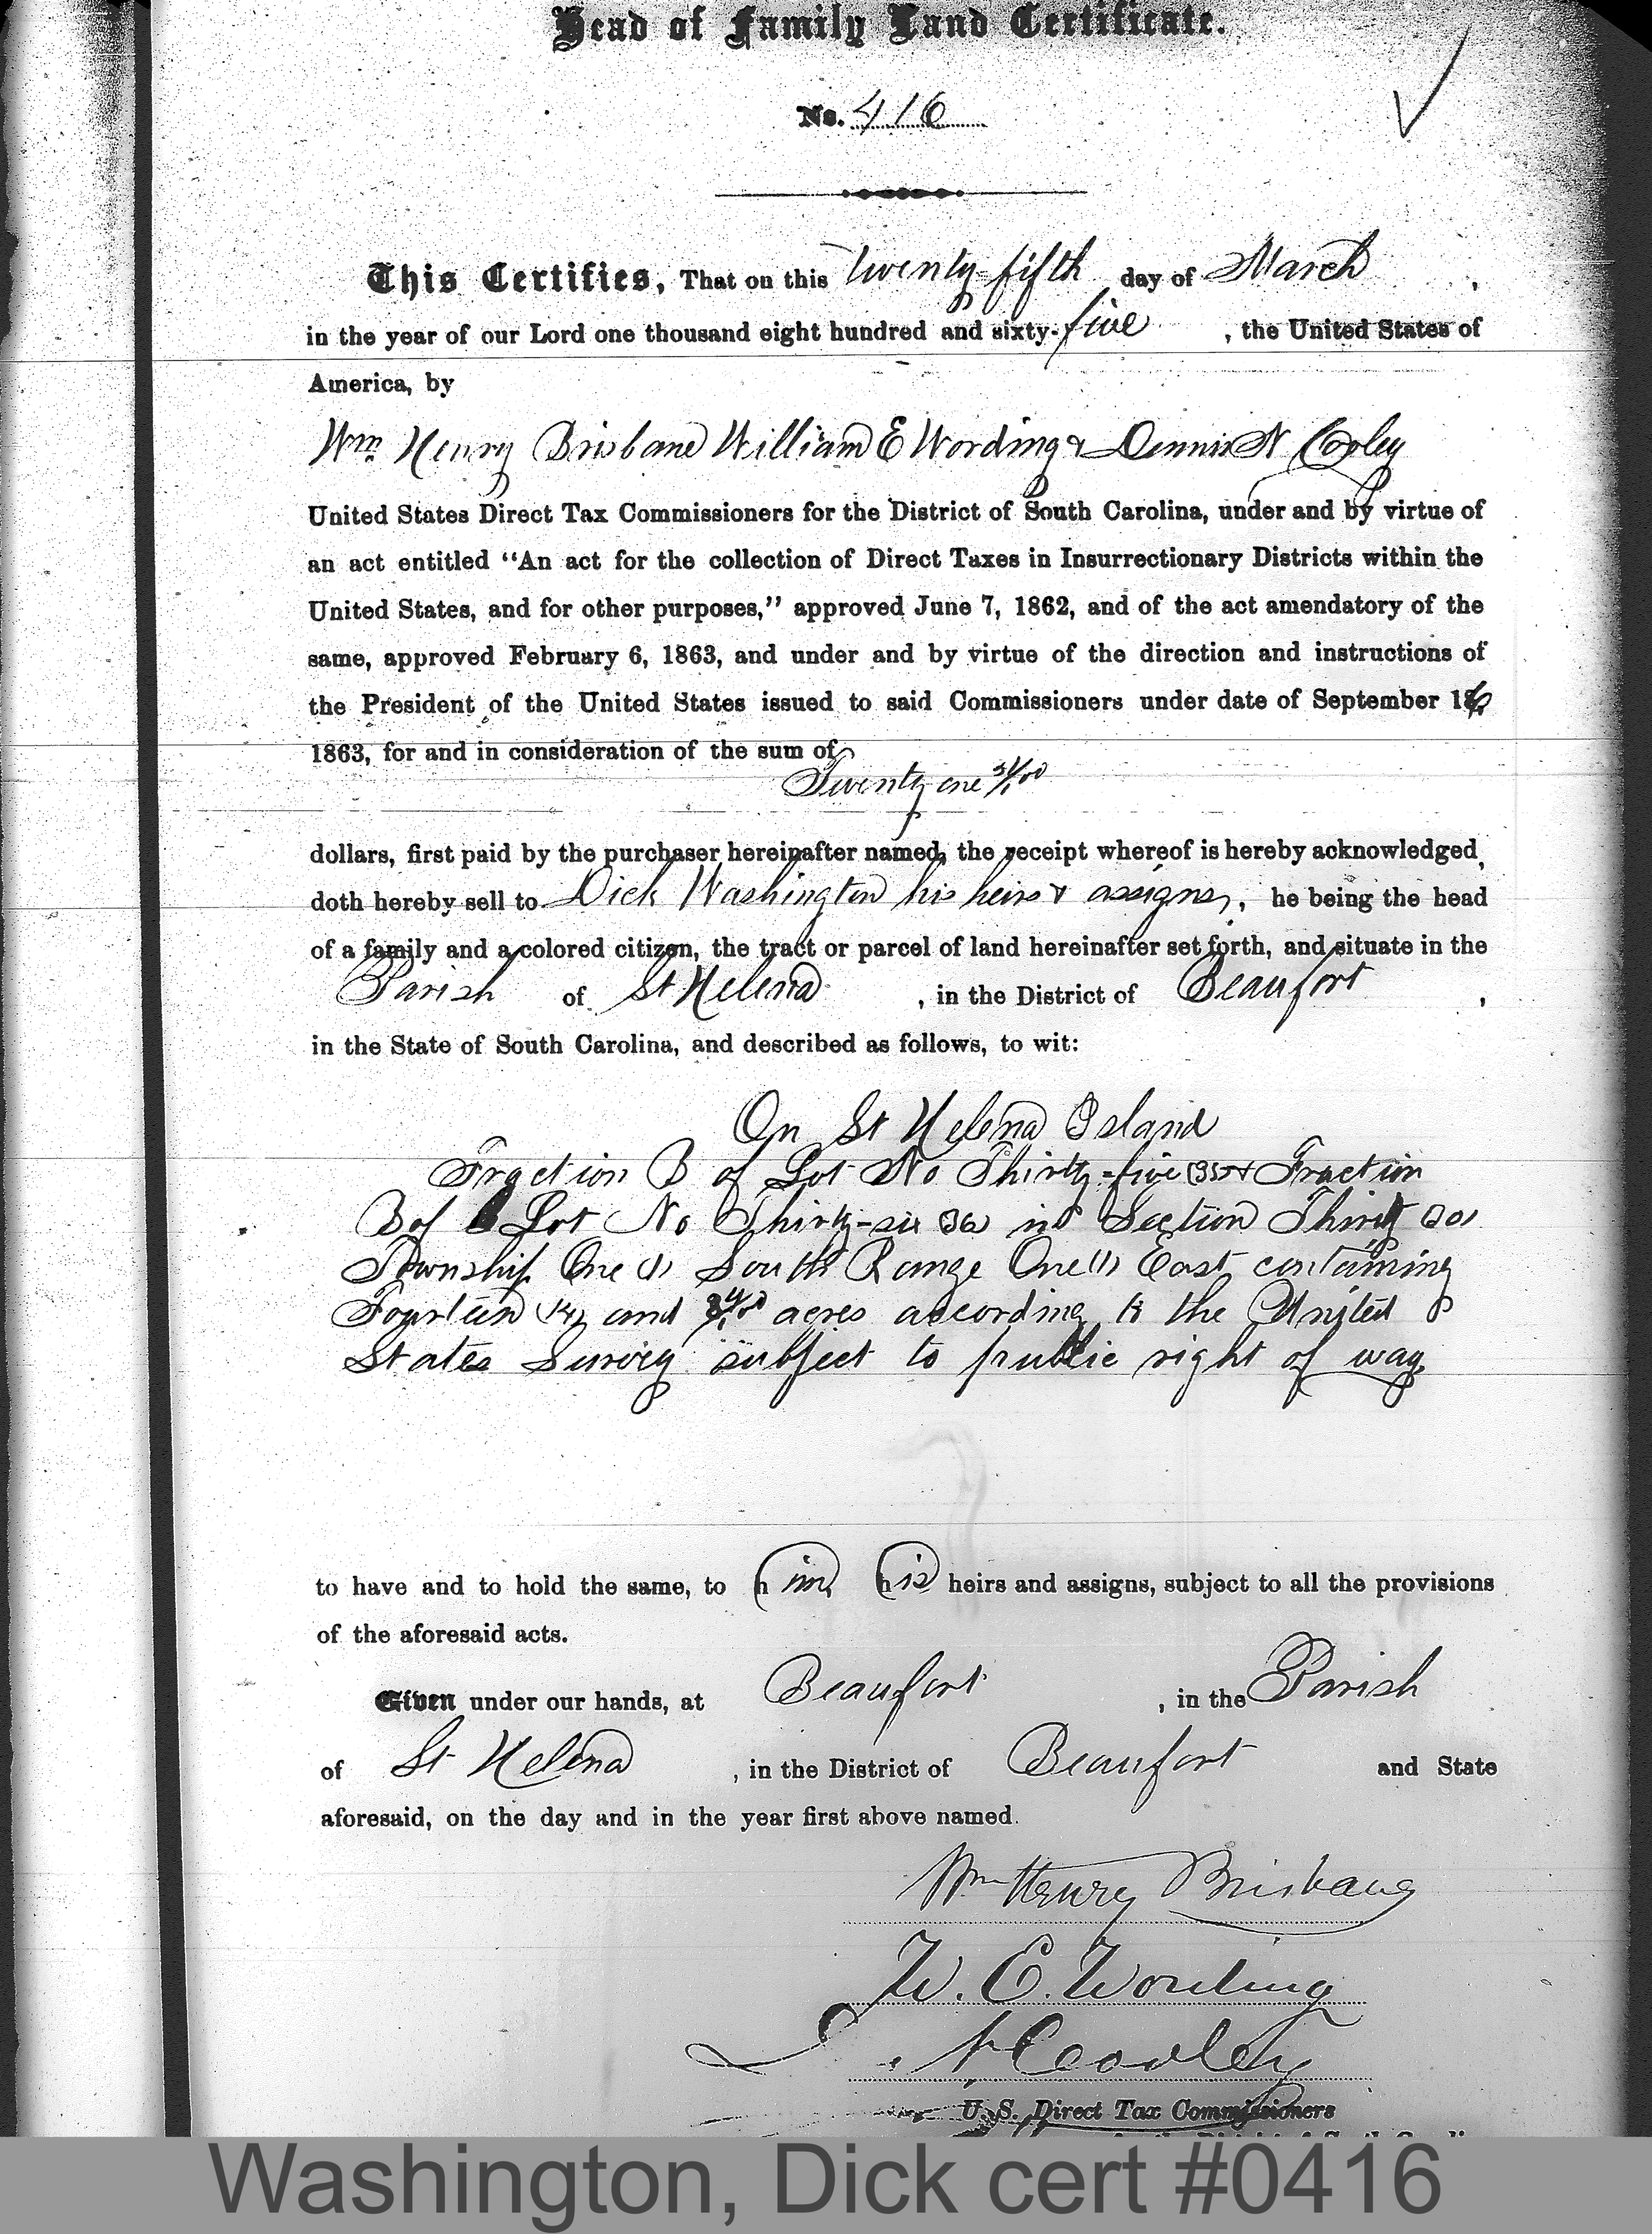 Head of Family Land Certificate.
No. 416
This Certifies, That on this twenty-fifth day of March,
in the year of our Lord one thousand eight hundred and sixty-five, the United States of
America, by
Wm Henry Brisbane William E Wording & Dennis N Cooley
United States Direct Tax Commissioners for the District of South Carolina, under and by virtue of
an act entitled "An act for the collection of Direct Taxes in Insurrectionary Districts within the
United States, and for other purposes," approved June 7, 1862, and of the act amendatory of the
same, approved February 6, 1863, and under and by virtue of the direction and instructions of
the President of the United States issued to said Commissioners under date of September 16
1863, for and in consideration of the sum of
Twenty one
dollars, first paid by the purchaser hereinafter named, the receipt whereof is hereby acknowledged,
doth hereby sell to Dick Washington his heirs & assigns, he being the head
of a family and a colored citizen, the tract or parcel of land hereinafter set forth, and situate in the
Parish of St Helena, in the District of Beaufort,
in the State of South Carolina, and described as follows, to wit:
On St Helena Island
Fraction B of Lot No Thirty-five (35) & Fraction
B of Lot No Thirty-six (36) in Section Thirty (30)
Township One (1) South Range One (1) East containing
Fourteen (14) and acres according to the United
States Survey subject to public right of way
to have and to hold the same, to him his heirs and assigns, subject to all the provisions
of the aforesaid acts.
Given under our hands, at Beaufort, in the Parish
of St Helena, in the District of Beaufort and State
aforesaid, on the day and in the year first above named.
Wm Henry Brisbane
W. E. Wording
D. N Cooley
U. S. Direct Tax Commissioners
Washington, Dick cert #0416